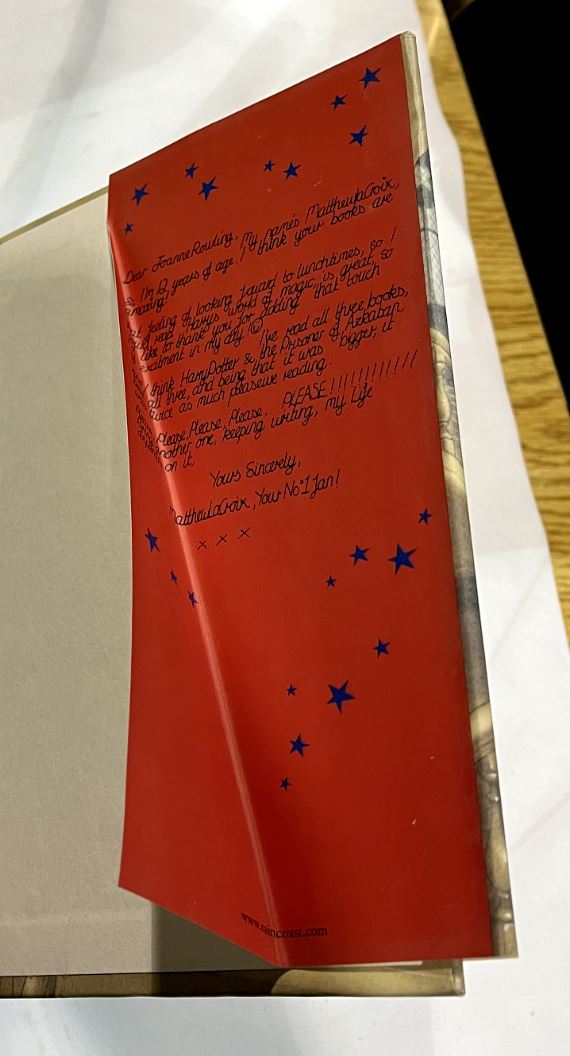 Dear Joanne Rowling, my name's Matthew LaCroix,
& I'm 12 years of age. I think your books are
amazing!
feeling of looking foward to lunchtimes, so I
read Harry's world of magic, is great, so
I like to thank you for adding that touch
exeitment in my day! ☺
I think Harry Potter & the Prisoner of Azkaban,
I've read all three books,
all three, and being that it was bigger, it
twice as much pleasure reading.
Please, Please, Please, PLEASE!!!!!!!!!!!!
another one, keeping writing, my life
on it,
Yours Sincerely,
Matthew LaCroix, Your No°1 fan!
x x x
www.raincoast.com